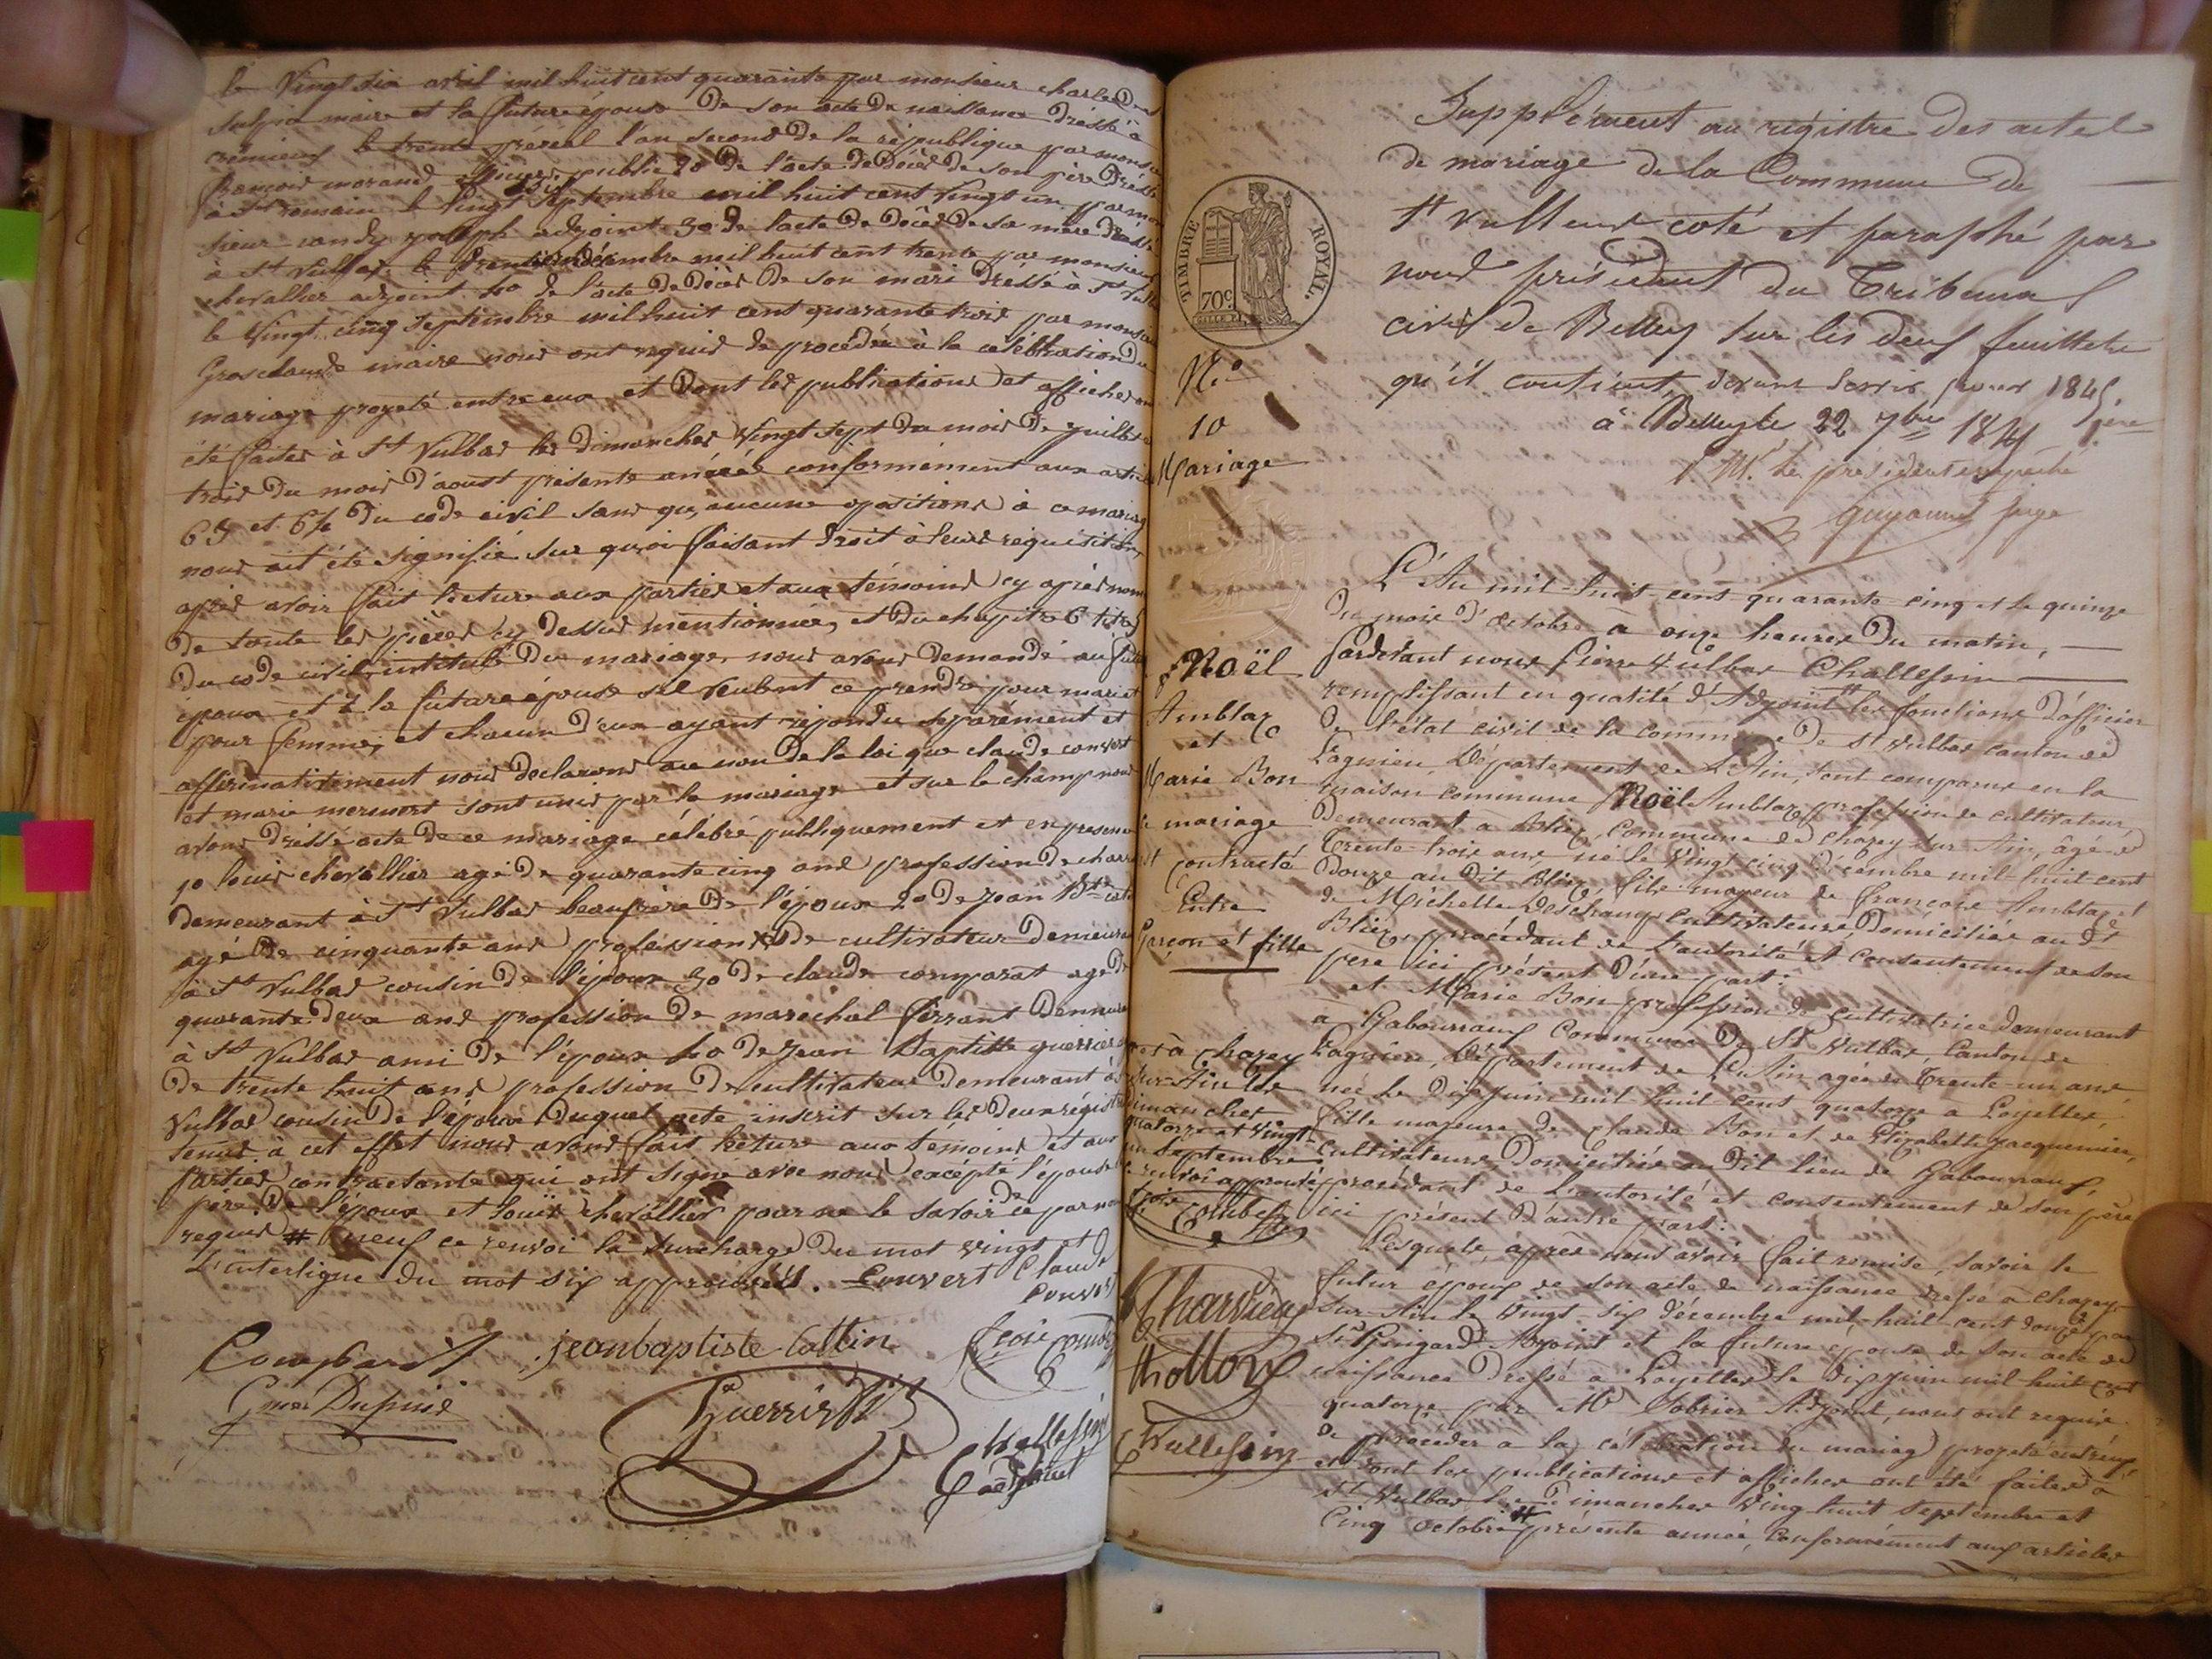 le Vingt six avril mil huit cent quarante par monsieur charles
maire et la future épouse De son acte De naissance Dressé à
crémieux le trente préréal l'an second De la république par monsieur
françois morand officier public 2o De l'acte De Décès De son père Dressé
à St romain le Vingt Septembre mil huit cent Vingt un par mon
sieur candy joseph adjoint 3o De l'acte De Décès De sa mère Dressé
à St Vulbas le Décembre mil huit cent trente par monsieur
chevallier adjoint 4o De l'acte De Décès De son mari Dréssé à St Vulbas
le Vingt cinq Septembre mil huit cent quarante trois par monsieur
Grosclaude maire nous ont requis De procéder à la célébration Du
mariage projeté entre eux et Dont les publications et affiches ont
été faites à St Vulbas les Dimanches Vingt Sept Du mois De juillet
trois Du mois D'aoust présente année conformément aux articles
63 et 64 Du code civil sans qu'aucune opositions à ce mariage
nous ait été signifié sur quoi faisant Droit à leurs requisition,
après avoir fait lecture aux parties et aux témoins cy après nom
De toute les pièces cy Dessus mentionnée, et Du chapitre 6 titre 5
Du code civil intitulé Du mariage, nous avons Demandé au futur
époux et à la future épouse s'il veulent ce prendre pour mari et
pour femme, et chacun D'eux ayant répondu séparément et
affirmativement nous Déclarons au nom De la loi que claude convert
et marie mermort sont unis par le mariage et sur le champ nous
avons Dréssé acte De ce mariage célébré publiquement et en presence
1o louis chevallier agé De quarante cinq ans profession De charr
Demeurant à St Vulbas beaufrère De l'époux 2o De jean Bte cottin
agé De cinquante ans profession De cultivateur Demeurant
à St Vulbas cousin De l'époux 3o De claude comparat agé De
quarante Deux ans profession De maréchal ferrant Demeurant
à St Vulbas ami De l'époux 4o De jean Baptiste guerrier
De trente huit ans profession De cultivateur Demeurant à St
Vulbas cousin De l'épouse Duquel acte inscrit sur les Deux régistres
tenus à cet effet nous avons fait lecture aux témoins et aux
parties contractante qui ont signé avec nous excepté l'épouse
père De l'époux et Louis chevallier pour ne le savoir De ce par nous
requis # neuf ce renvoi la surcharge Du mot vingt et De
L'interligne du mot six approuvés. Convert Claude
Convert
Comparat jean baptiste Cottin
Dupuis Guerrier
Challesin
adjoint
Supplément au régistre des actes
de mariage de la Commune de
St Vulbas coté et paraphé par
nous président du Tribunal
civil de Belley sur les deux feuillets
qu'il contient, devant servir pour 1845.
à Belley le 22 7bre 1845
P. Mr. le président empêché
juge
TIMBRE ROYAL.
70c.
No
10
Mariage
Noël
Amblaz
et
Marie Bon
mariage
contracté
Entre
Garçon et fille
L'An mil-huit-cent quarante-cinq et le quinze
Du mois d'octobre à onze heures Du matin,
Pardevant nous Pierre Vulbas Challesin
remplissant en qualité d'Adjoint les fonctions D'officier
De l'état civil de la commune De St Vulbas canton de
Lagnieu, Département de L'Ain, sont comparus en la
maison commune Noël Amblaz, profession de cultivateur,
Demeurant à Blie, commune de Chazey sur Ain, âgé de
Trente-trois ans né le Vingt cinq Décembre mil-huit-cent
Douze au dit Blie, fils majeur de françois Amblaz et
de Michelle Deschamp cultivateurs Domiciliés au dt
Blie, procédant de L'autorité et consentement de son
père ici présent D'une part:
et Marie Bon profession de Cultivatrice demeurant
à Gabourraux Commune De St Vulbas, Canton de
Lagnieu, Département de L'Ain agée de Trente-un ans,
née le Dix juin mil huit-cent quatorze à Loyettes,
fille majeure de Claude Bon et de Elizabette Jacquemier,
cultivateurs Domiciliés au dit lieu de Gabourraux,
procédant de L'autorité et consentement de son père
ici présent D'autre part:
Lesquels, après nous avoir fait remise, savoir le
futur époux de son acte de naissance dressé à chazey-
sur-Ain le Vingt-six décembre mil-huit-cent douze par
Sr Guigard Adjoint et la future épouse de son acte de
naissance Dressé à Loyettes le Dix juin mil huit cent
quatorze par Mr Adjoint, nous ont requis
De procéder à la célébration du mariage projeté entr'eux
et dont les publications et affiches ont été faites à
St Vulbas les Dimanches Vingt huit Septembre et
Cinq octobre # présente année, Conformément aux articles
et à Chazey
sur-Ain les
Dimanches
quatorze et Vingt-
un Septembre
ce renvoi approuvé
Charvieux
thollon
Challesin